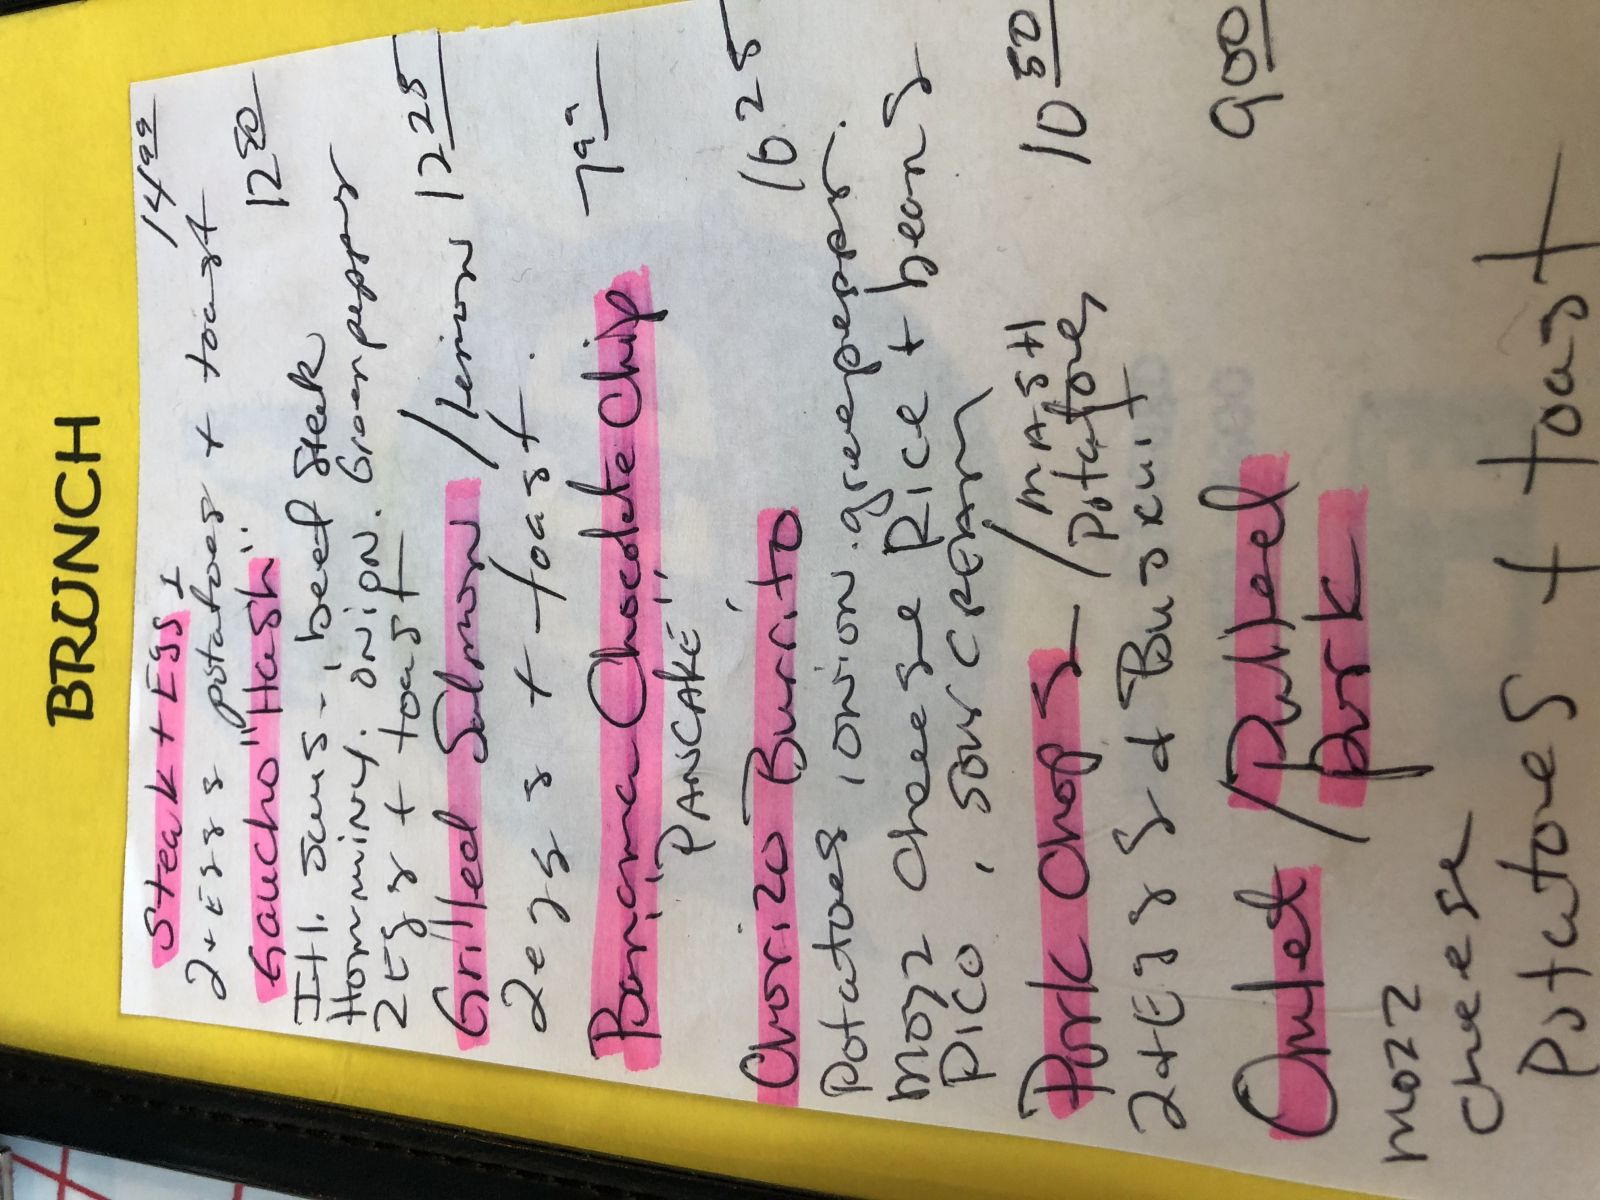 BRUNCH
Steak + Eggs 14 99
2 + Eggs potatoes + toast
Gaucho "Hash" 12 50
Itl. saus - beef steak
Hominny. onion. Greenpeppers
2 Eggs + toast
Grilled Salmon /lemon 12 25
2 eggs + toast.
Banana Chocolate Chip 7 99
"PANCAKE"
Chorizo Burrito 16 25
Potatoes onion. greepeppers.
Mozz cheese Rice + beans
Pico, sour cream
Pork Chops / MASH 10 50
potatoes
2 + Eggs + Buscuit
Omlet /Pulled 9 00
/pork
mozz
cheese
Potatoes + toast